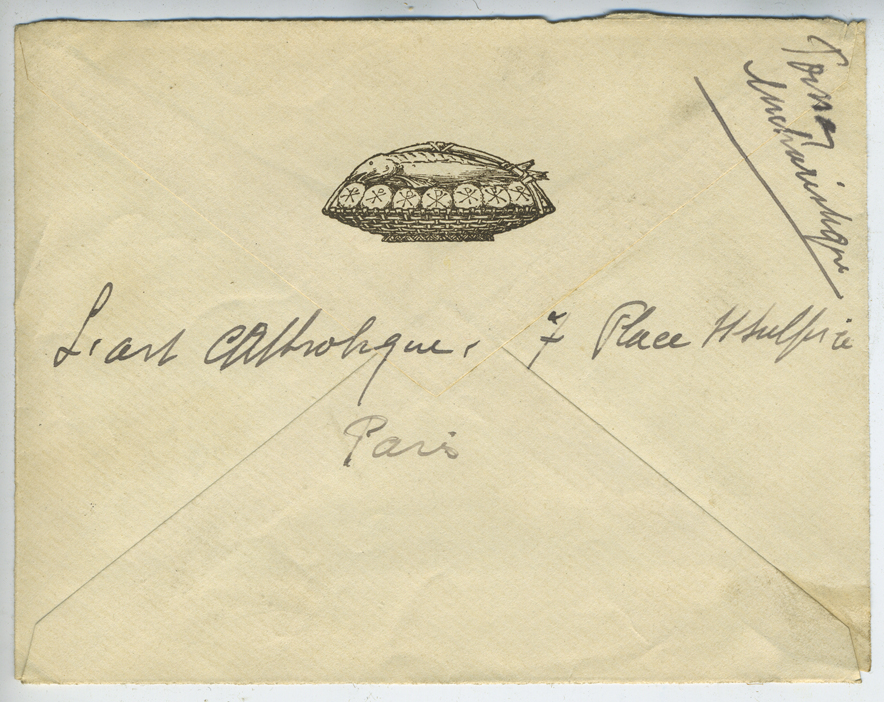 Poisson
eucharistique
L'art Catholique, 7 Place St Sulpice
Paris